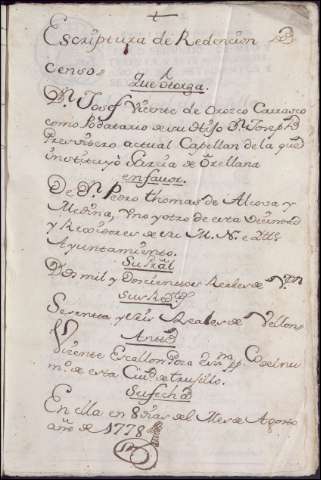 Escriptura de Redencion
censo
Que otorga.
Dn. Josef Vicente de Orozco Carrasco
como Podatario de su Hijo Dn. Joseph
Presvitero actual Capellan de la que
instituyó Garcia de Orellana
en favor.
De Dn. Pedro thomas de
Medina, Vno y otro de esta Ciudad
y Rexidores de su M. N. e
Ayuntamiento.
Su Pral
Dos mil y Docientos Reales de Vn
Sus Rtos
Sesenta y seis Reales de Vellon
Antte
Vicente
mo. de esta Ciud. de truxillo.
Su fecha
En ella en 8 dias del Mes de Agosto
año de 1778